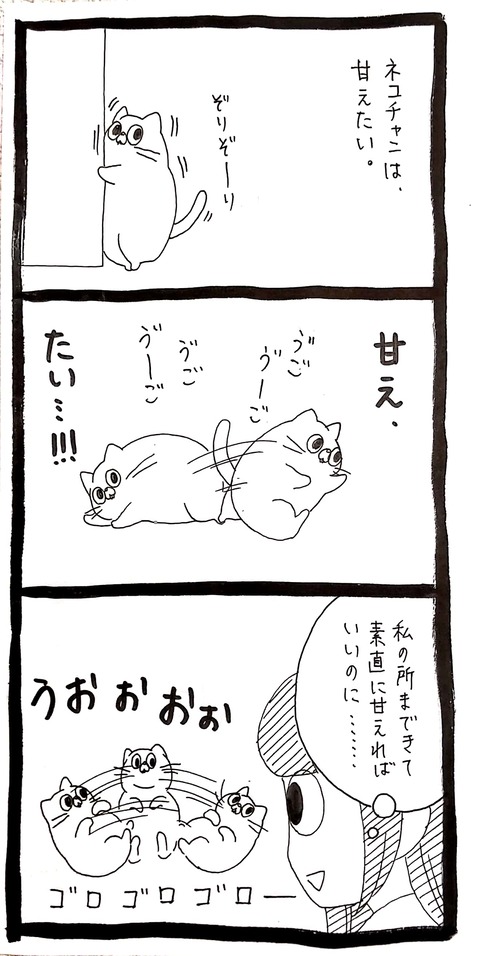 ネコチャンは、
甘えたい。
ぞりぞーり
甘え、
うご
うーご
うご
うーご
たい…!!!
私の所まできて
素直に甘えれば
いいのに……
うおおおぉ
ゴロゴロゴロー